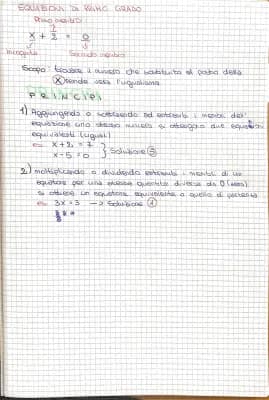 EQUAZIONI DI PRIMO GRADO
Primo membro
x + 2 = 0
Incognita Secondo membro
Scopo: trovare il numero che sostituito al posto della
x renda vera l'uguaglianza
PRINCIPI
1) Aggiungendo o sottraendo ad entrambi i membri dell'
equazione uno stesso numero si ottengono due equazioni
equivalenti (uguali)
es x+2=7
x-5=0 } Soluzione 5
2) moltiplicando o dividendo entrambi i membri di un
equazione per una stessa quantità diversa da 0 (zero)
si ottiene un equazione equivalente a quella di partenza
es 3x=3 → Soluzione 1